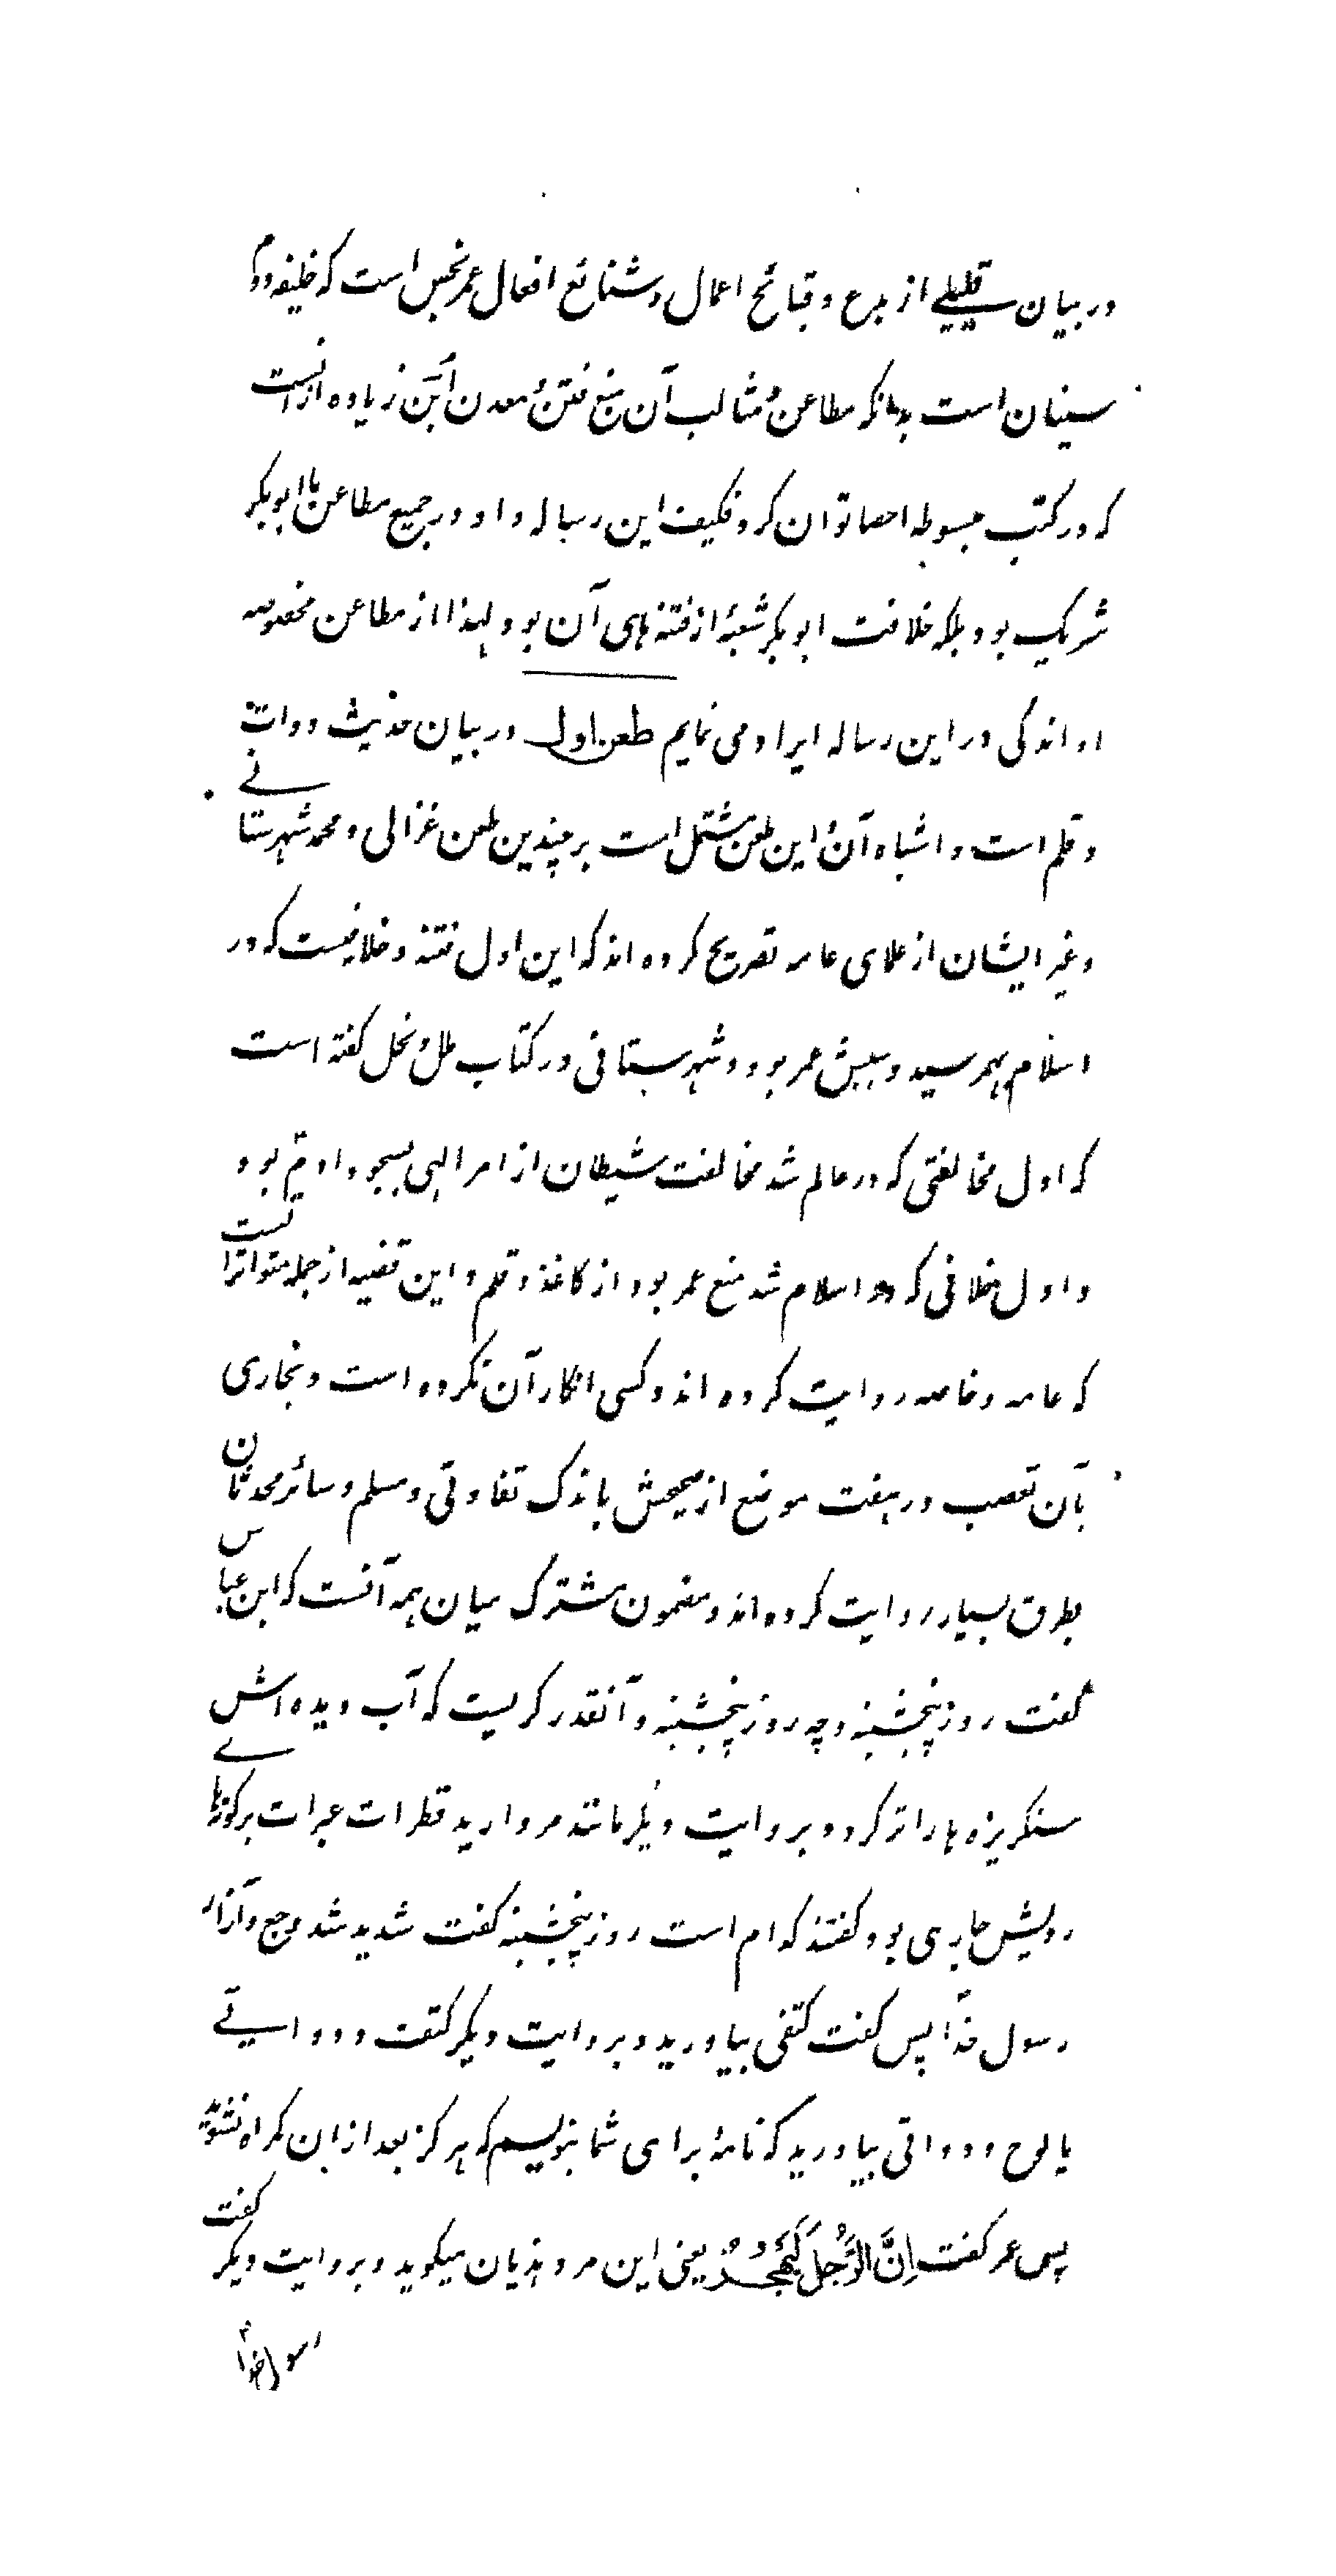 در بیان قلیلے از بدع و قبائح اعمال و شنائع افعال عمر نجس است که خلیفه دوم
سنیان است بدانکه مطاعن و مثالب آن منبع فتن و معدن زیاده از انست
که در کتب مبسوطه احصا توان کرد فکیف این رساله و او در جمیع مطاعن با ابوبکر
شریک بود بلکه خلافت ابوبکر شعبهٔ از فتنه های آن بود لهذا از مطاعن مخصوصه
او اندکی در این رساله ایراد می نمایم طعن اول در بیان حدیث دوات
و قلم است و اشباه آن و این طعن مشتمل است بر چندین طعن غزالی و محمد شهرستانے
و غیر ایشان از علمای عامه تصریح کرده اند که این اول فتنه و خلافیست که در
اسلام بهم رسید و سببش عمر بود و شهرستانی در کتاب ملل و نحل گفته است
که اول مخالفتی که در عالم شد مخالفت شیطان از امر الهی بسجود آدم بود
و اول خلافی که در اسلام شد منع عمر بود از کاغذ و قلم و این قضیه از جمله متواتراتست
که عامه و خاصه روایت کرده اند و کسی انکار آن نکرده است و بخاری
بآن تعصب در هفت موضع از صحیحش باندک تفاوتی و مسلم و سائر محدثان
بطرق بسیار روایت کرده اند و مضمون مشترک میان همه آنست که ابن عباس
گفت روز پنجشنبه و چه روز پنجشنبه و آنقدر گریست که آب دیده اش
سنگریزه ها را تر کرد و بروایت دیگر مانند مروارید قطرات عبرات بر گونهاے
رویش جاری بود گفتند کدام است روز پنجشنبه گفت شدید شد وجع و آزار
رسول خدا پس گفت کتفی بیاورید و بروایت دیگر گفت و دواتے
یا لوح و دواتی بیاورید که نامهٔ برای شما بنویسم که هرگز بعد ازان گمراه نشوید
پس عمر گفت اِنَّ الرَّجُلَ لَیَهْجُرُ یعنی این مرد هذیان میگوید و بروایت دیگر گفت
رسول خدا